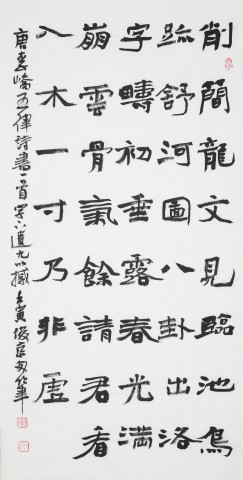 削簡龍文見臨池鳥
跡舒河圖八卦出洛
字疇初垂露春光滿
崩雲骨氣餘請君看
入木一寸乃非虛
唐李嶠五律詩書一首字下遺九以 壬寅俊